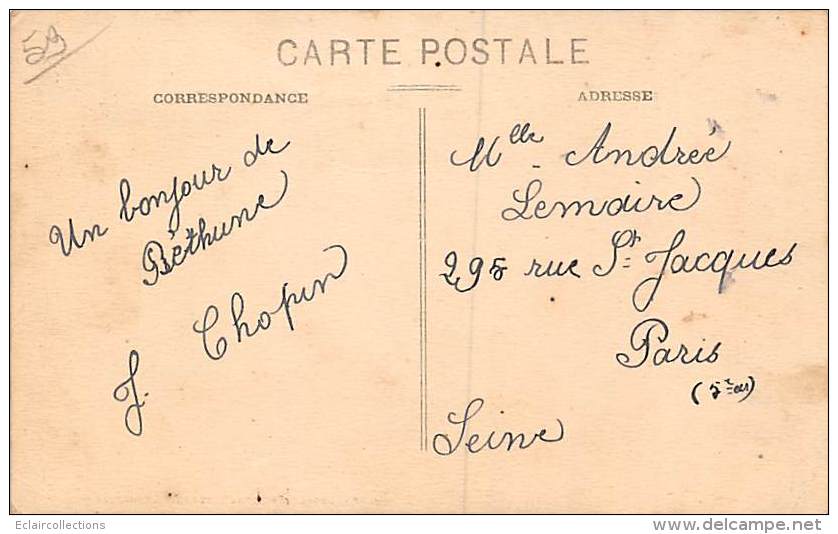 59
CARTE POSTALE
CORRESPONDANCE
ADRESSE
Un bonjour de
Béthune
J. Chopin
Mlle Andrée
Lemaire
295 rue St Jacques
Paris
Seine
Eclaircollections
www.delcampe.net